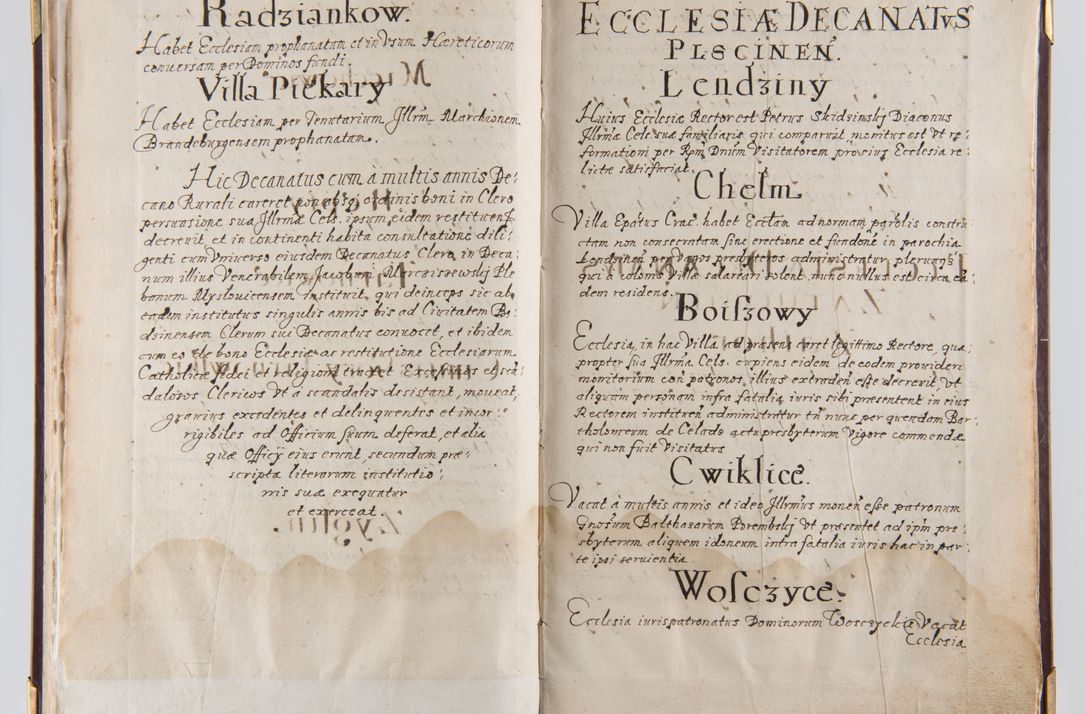 Radziankow.
Habet Ecclesiam prophanatam et in Vsum Hæreticorum
conuersam per Dominos fundi.
Villa Piekary
Habet Ecclesiam per Tenutarium Jllrm̃ Marchionem
Brandeburgensem prophanatam.
Hic Decanatus cum à multis annis De-
cano Rurali careret non absq; ordinis boni in Clero
persuasione sua Jllrma Cels. ipsum eidem restituend
decreuit, et in continenti habita consultatione dili-
genti cum Vniuerso eiusdem Decanatus Clero, in Deca-
num illius Venerabilem Jacobum Ple-
banum Myslouicensem instituit, qui deinceps sic ab
eodem institutus singulis annis bis ad Ciuitatem Be-
dzinensem Clerum sui Decanatus conuocet, et ibidem
cum eo de bono Ecclesiæ ac restitutione Ecclesiarum
Catholicæ fidei et religioni tractet Excessiuos et sca-
dalosos Clericos Vt a scandalis desistant, moueat,
grauius excedentes et delinquentes et incor-
rigibiles ad Officium suum deferat, et alia
quæ Officij eius erunt, secundum præ-
scripta literarum institutio-
nis suæ exequatur
et exerceat.
ECCLESIÆ DECANATVS
PLSCINEN.
Lendziny
Huius Ecclesiæ Rector est Petrus Skidzinskj Diaconus
Jllrmæ Cels. suæ familiaris, qui comparuit monitus est Vt re-
formationi per Rm̃ Dnũm Visitatorem pro eius Ecclesia re
lictæ satisfaciat.
Chełm
Villa Epatus Crac. habet Ecclam ad normam parolis constru
ctam non consecratam sine erectione et fundone in parochia
Lendzinen per Vagos presbyteros administratur plerumq
qui a colonis Villæ salarari solent. nunc nullus est circa ea
dem residens.
Boiszowy
Ecclesia, in hac Villa ad præsens caret legittimo Rectore, qua
propter sua Jllrma Cels. cupiens eidem de eodem prouideri
monitorium con patronos illius extraden esse decreuit, Vt
aliquam personam infra fatalia iuris sibi presentent in eius
Rectorem instituen administratur tñ nunc per quendam Bar-
tholomeum de Celads actu presbyterum Vigore commendæ
qui non fuit Visitatus
Cwiklice.
Vacat à multis annis et ideo Jllrmus monen esse patronum
Gnosum Balthasarum Porembskj Vt præsentet ad ipm pre-
sbyterum aliquem idoneum intra fatalia iuris hac in par
te ipsi seruientia.
Wosczyce.
Ecclesia iurispatronatus Dominorum Wosczyckie Vacat
Ecclesia